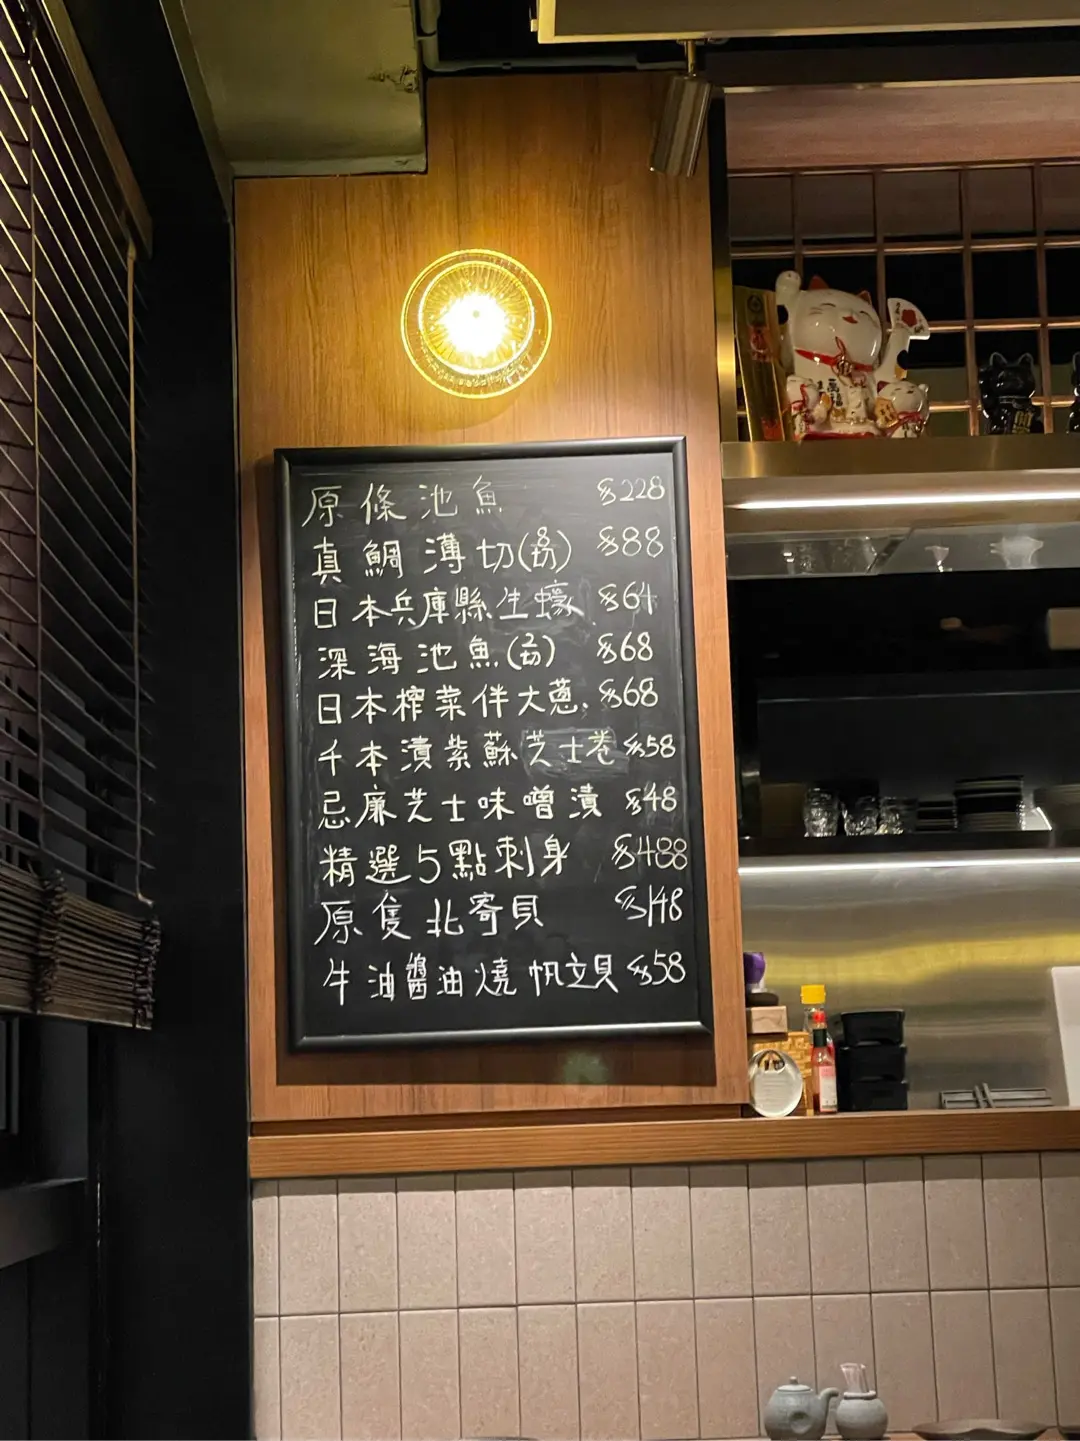 原條池魚 $228
真鯛薄切(8切) $88
日本兵庫縣生蠔 $64
深海池魚(2切) $68
日本榨菜伴大蔥 $68
千本漬紫蘇芝士卷 $58
忌廉芝士味噌漬 $48
精選5點刺身 $488
原隻北寄貝 $148
牛油醬油燒帆立貝 $58